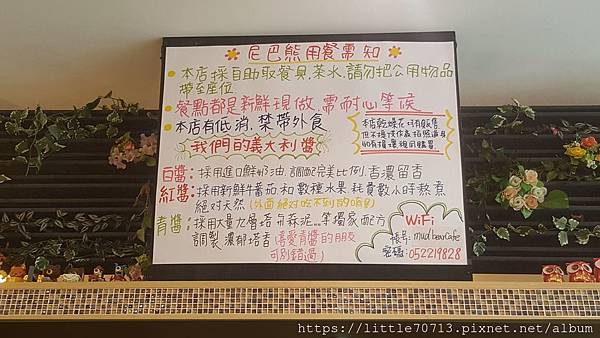 尼巴熊用餐需知
本店採自助取餐具.茶水.請勿把公用物品
帶至座位
餐點都是新鮮現做.需耐心等候
本店有低消.禁帶外食
我們的義大利醬
白醬:採用進口鮮奶油.調配完美比例.香濃留香
紅醬:採用新鮮牛蕃茄和數種水果.耗費數小時熬煮
絕對天然(外面絕對吃不到的唷!)
青醬:採用大量九層塔.杏蒜泥...等獨家配方
調製.濃郁塔香(喜愛青醬的朋友
可別錯過)
本店乾燥花.只有販售
購買
WiFi
帳號:mudbearCafe
密碼:052219828
https://little70713.pixnet.net/album